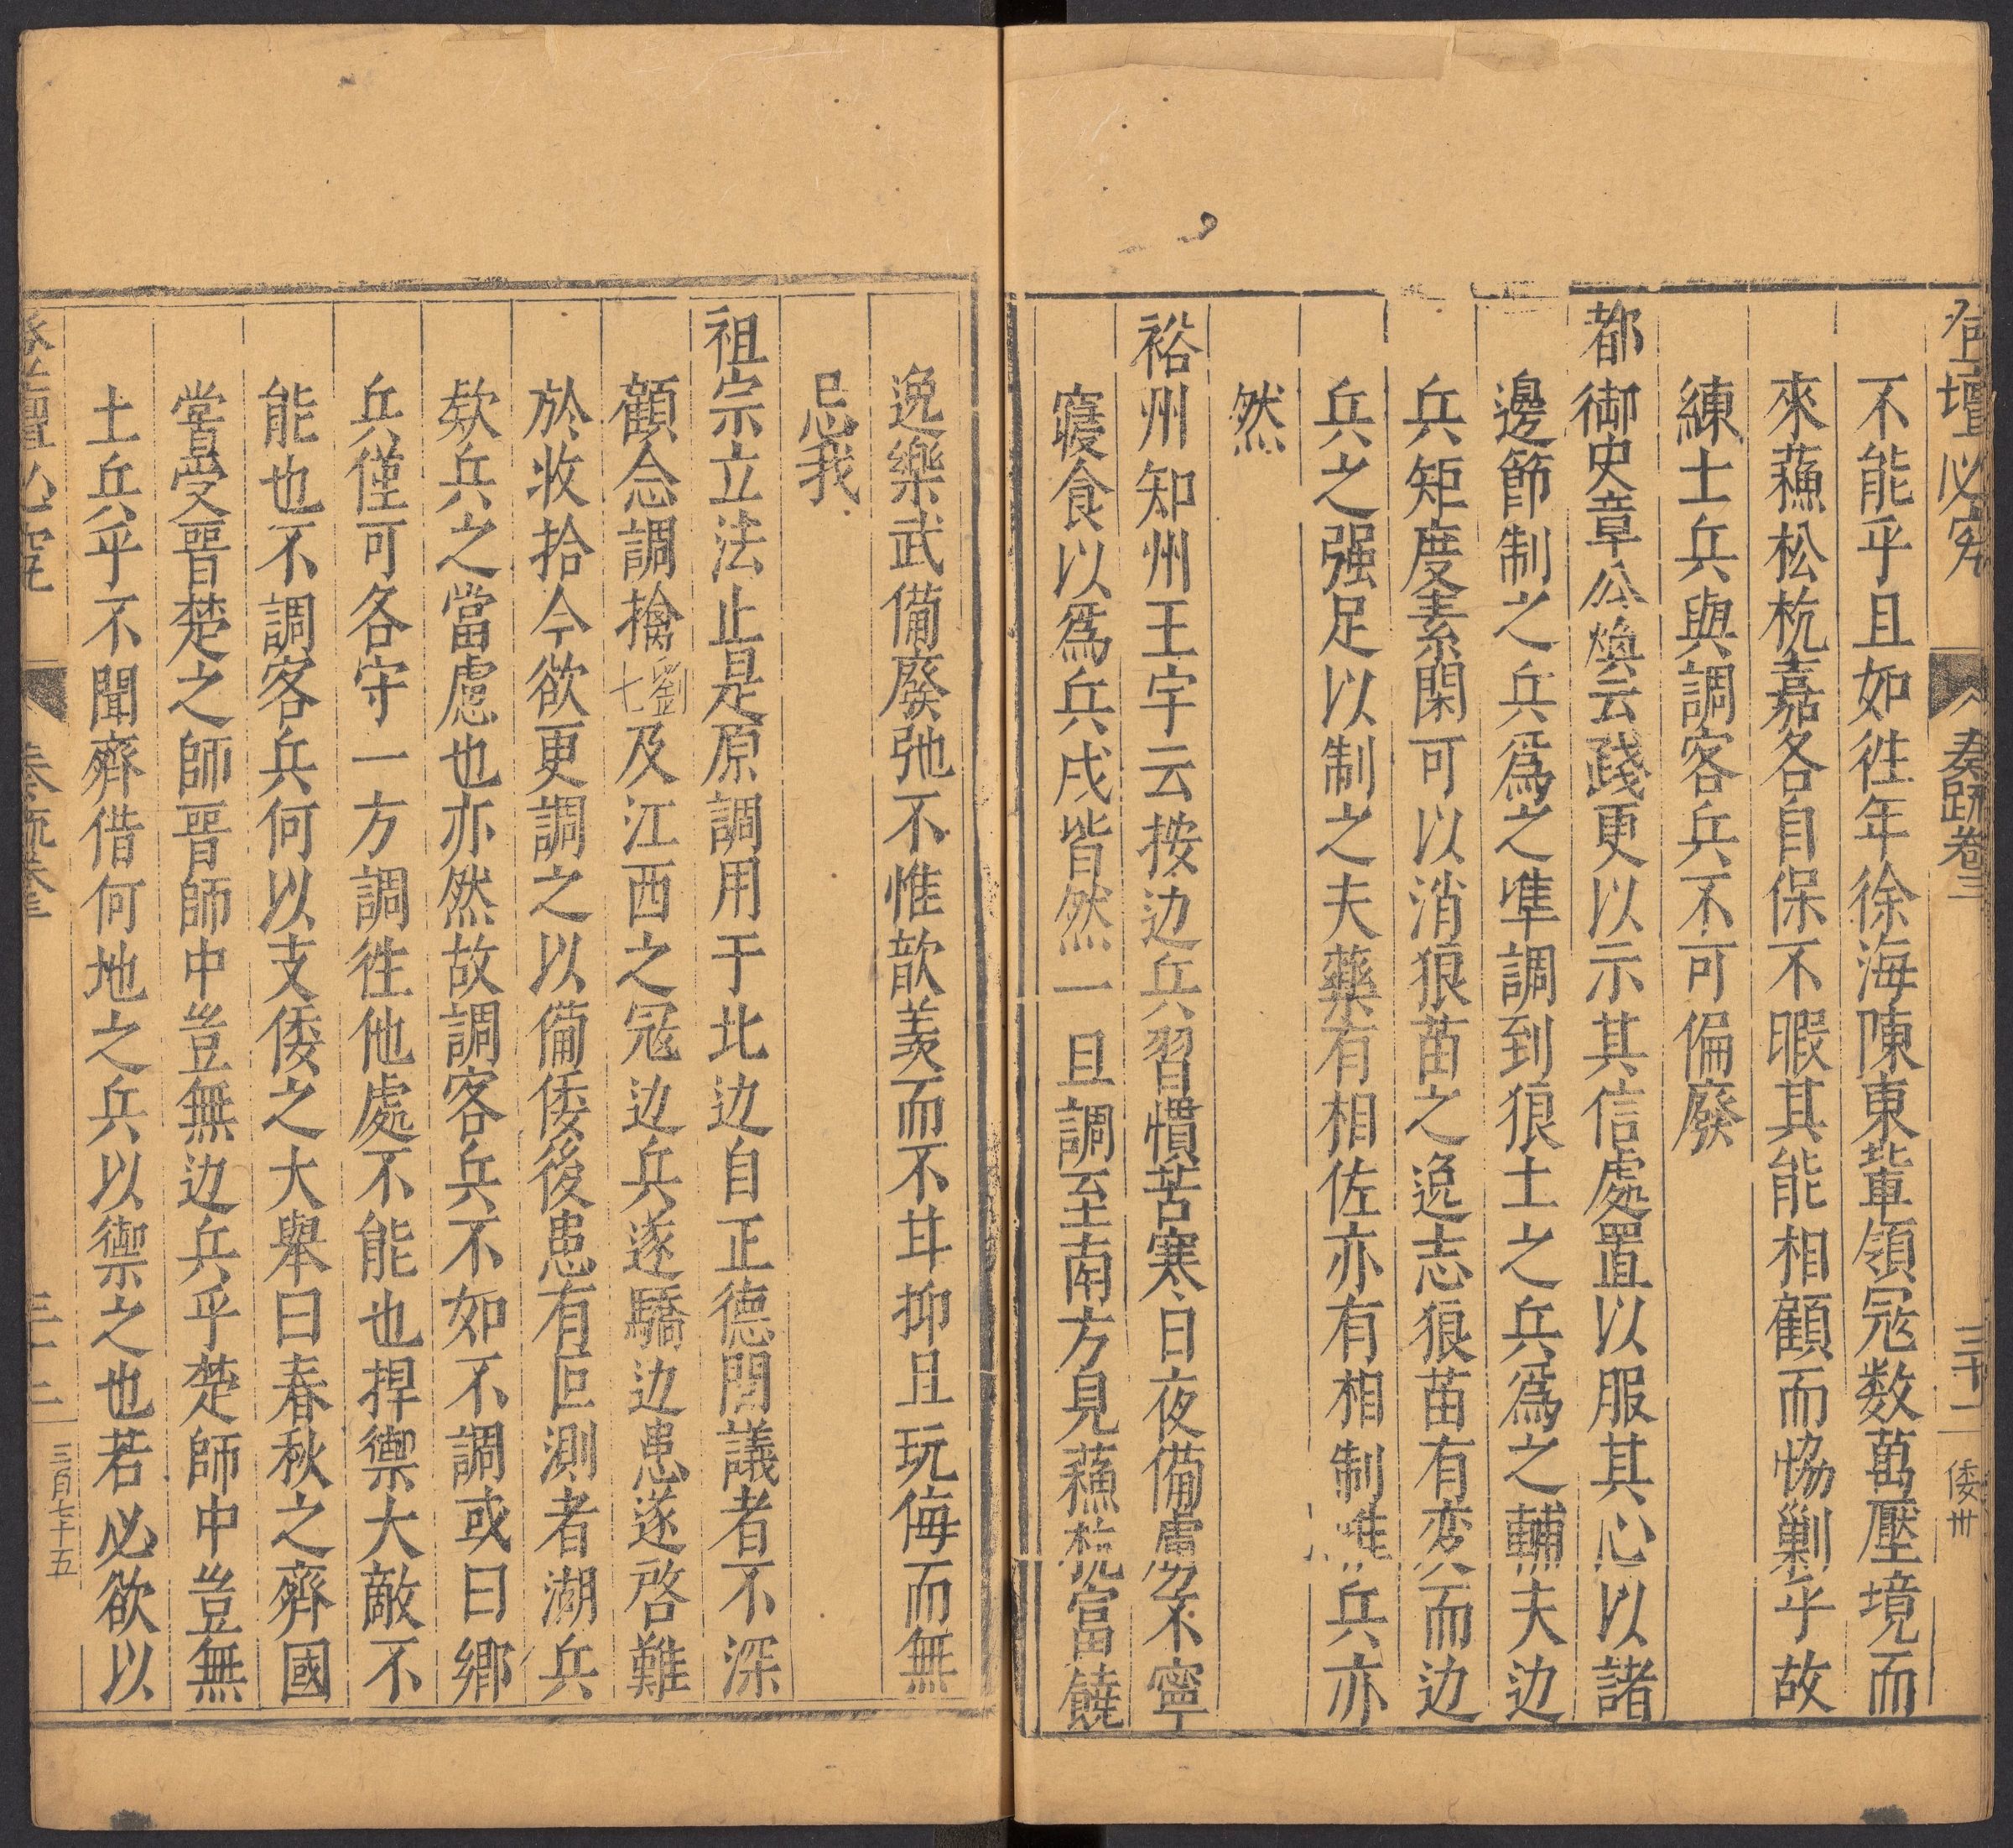 登壇必究 奏疏卷三 三十二 倭卅
不能乎且如徃年徐海陳東軰領冦数萬壓境而
來蘓松杭嘉各自保不暇其能相顧而恊剿乎故
練土兵與調客兵不可偏廢
都御史章公煥云踐更以示其信處置以服其心以諸
邊節制之兵爲之凖調到狼土之兵爲之輔夫边
兵矩度素閑可以消狼苗之逸志狼苗有变而边
兵之强足以制之夫藥有相佐亦有相制惟兵亦
然
裕州知州王宇云按边兵習慣苦寒日夜備虜勿不寧
寢食以爲兵戍皆然一旦調至南方見蘓杭富饒
逸樂武備廢弛不惟歆羡而不甘抑且玩侮而無
忌我
祖宗立法止是原調用于北边自正德間議者不深
顧念調擒劉七及江西之冦边兵遂驕边患遂啓難
於收拾今欲更調之以備倭後患有叵測者湖兵
欸兵之當慮也亦然故調客兵不如不調或曰鄉
兵僅可各守一方調徃他處不能也捍禦大敵不
能也不調客兵何以支倭之大舉曰春秋之齊國
嘗受晋楚之師晋師中豈無边兵乎楚師中豈無
土兵乎不聞齊借何地之兵以禦之也若必欲以
登壇必究 奏疏卷三 三十三 三百七十五